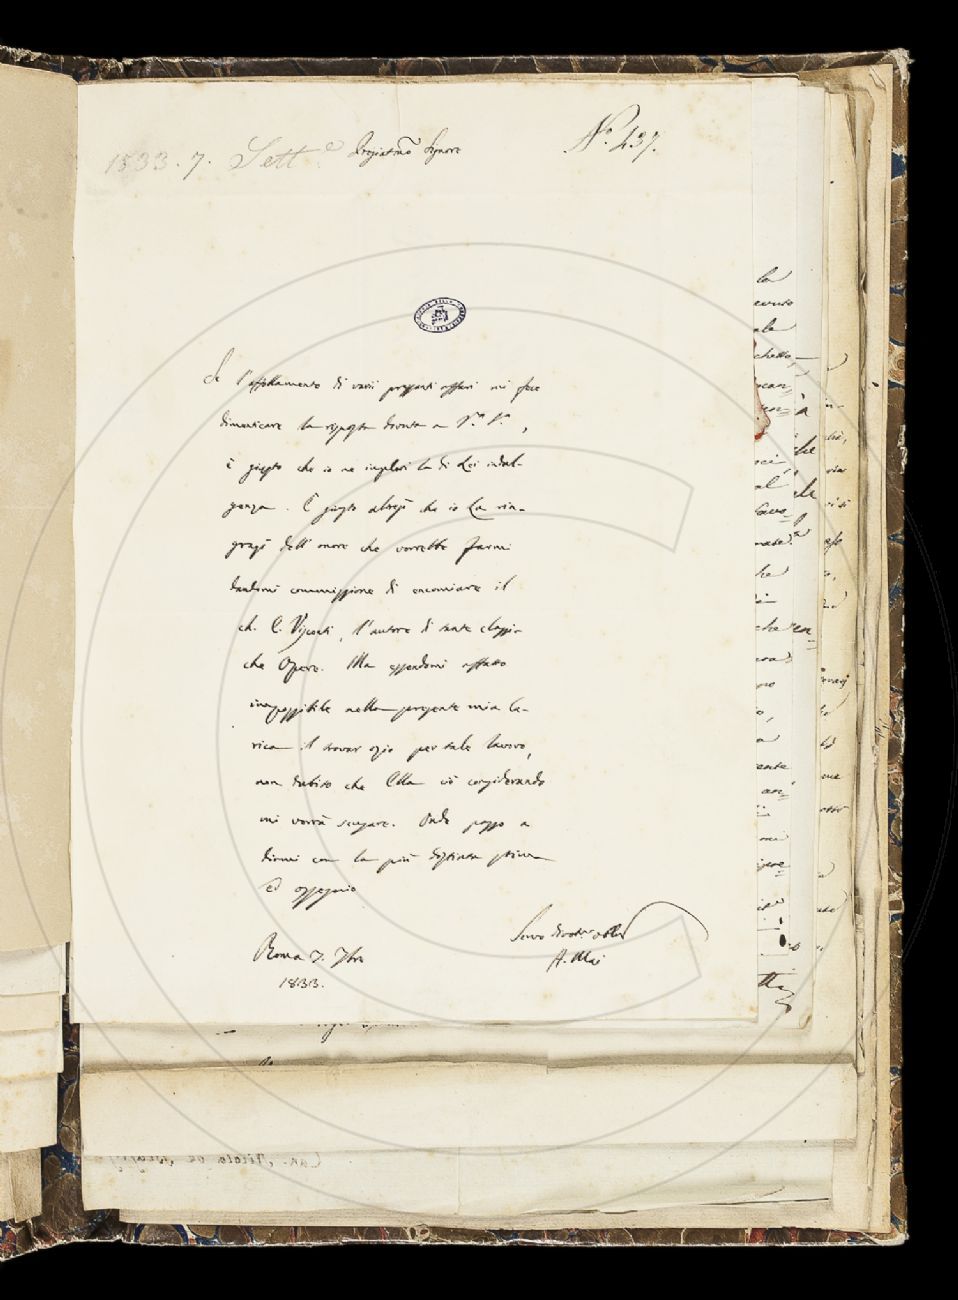 1833. 7. Sett.e
Pregiatmo Signore
No. 437.
Se l'affollamento di varii pressanti affari mi fece
dimenticare la risposta dovuta a V.ra S.a,
è giusto che io ne implori la di Lei indul-
genza. È giusto altresì che io La rin-
grazi dell'onore che vorrebbe farmi
dandomi commissione di encomiare il
ch. C. Visconti, l'autore di tante classi-
che Opere. Ma essendomi affatto
impossibile nella presente mia ca-
rica il trovar ozio per tale lavoro,
non dubito che Ella ciò considerando
mi vorrà scusare. Onde passo a
dirmi con la più distinta stima
ed ossequio
Servo devot. obbl.
A. Mai
Roma 7. 7bre
1833.